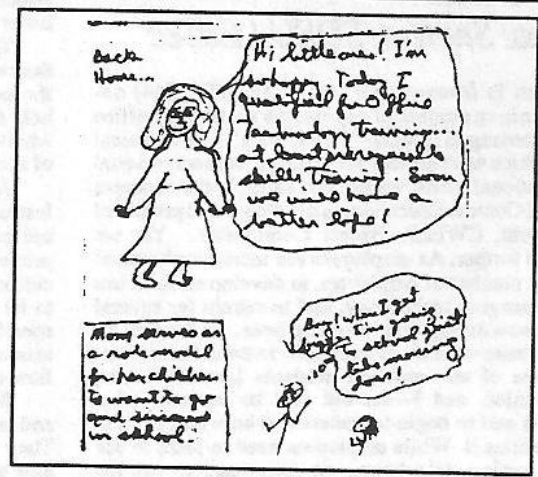 Back
Home...
Hi little ones! I'm
so happy. Today I
qualified for Office
Technology Training...
at last meaningful
skills Training! Soon
we will have a
better life!
Mom serves as
a role model
for her children
to want to go
and succeed
in school.
Boy! When I get
bigger I'm going
to school just
like mommy
does!